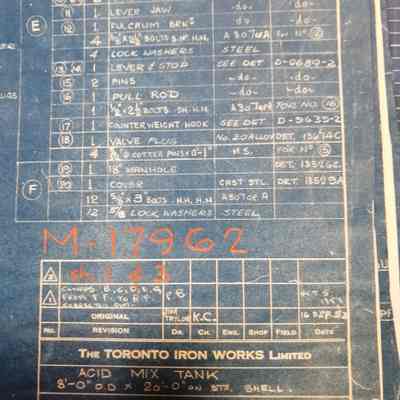 11 1 LEVER JAW -do- -do-
E 12 2 FULCRUM BRKS -do- -do-
4 BOLTS S.H. H.N. A307GRA FOR Nº 12
4 LOCK WASHERS STEEL
1 LEVER & STOP SEE DET D-9689-2
15 2 PINS -do- -do-
16 1 PULL ROD -do- -do-
1 BOLTS SH. H.N. A307GRA FOR NO. 16
17 1 COUNTERWEIGHT HOOK SEE DET. D-9635-2
18 1 VALVE PLUG No. 20 ALLOY DET.
4 COTTER PINS M.S. FOR Nº
19 1 18" MANHOLE DET.
F 20 1 COVER CAST STL. DET. 13529A
12 5/8 x 3 BOLTS H.H. H.N. A307GR A
12 5/8 LOCK WASHERS STEEL
M-17962
2
1
ORIGINAL JIM TAYLOR K.C. 16 SEP. 52
NO. REVISION DR. CH. ENG. SHOP FIELD DATE
THE TORONTO IRON WORKS LIMITED
ACID MIX TANK
8'-0" O.D x 20'-0" ON STR. SHELL.